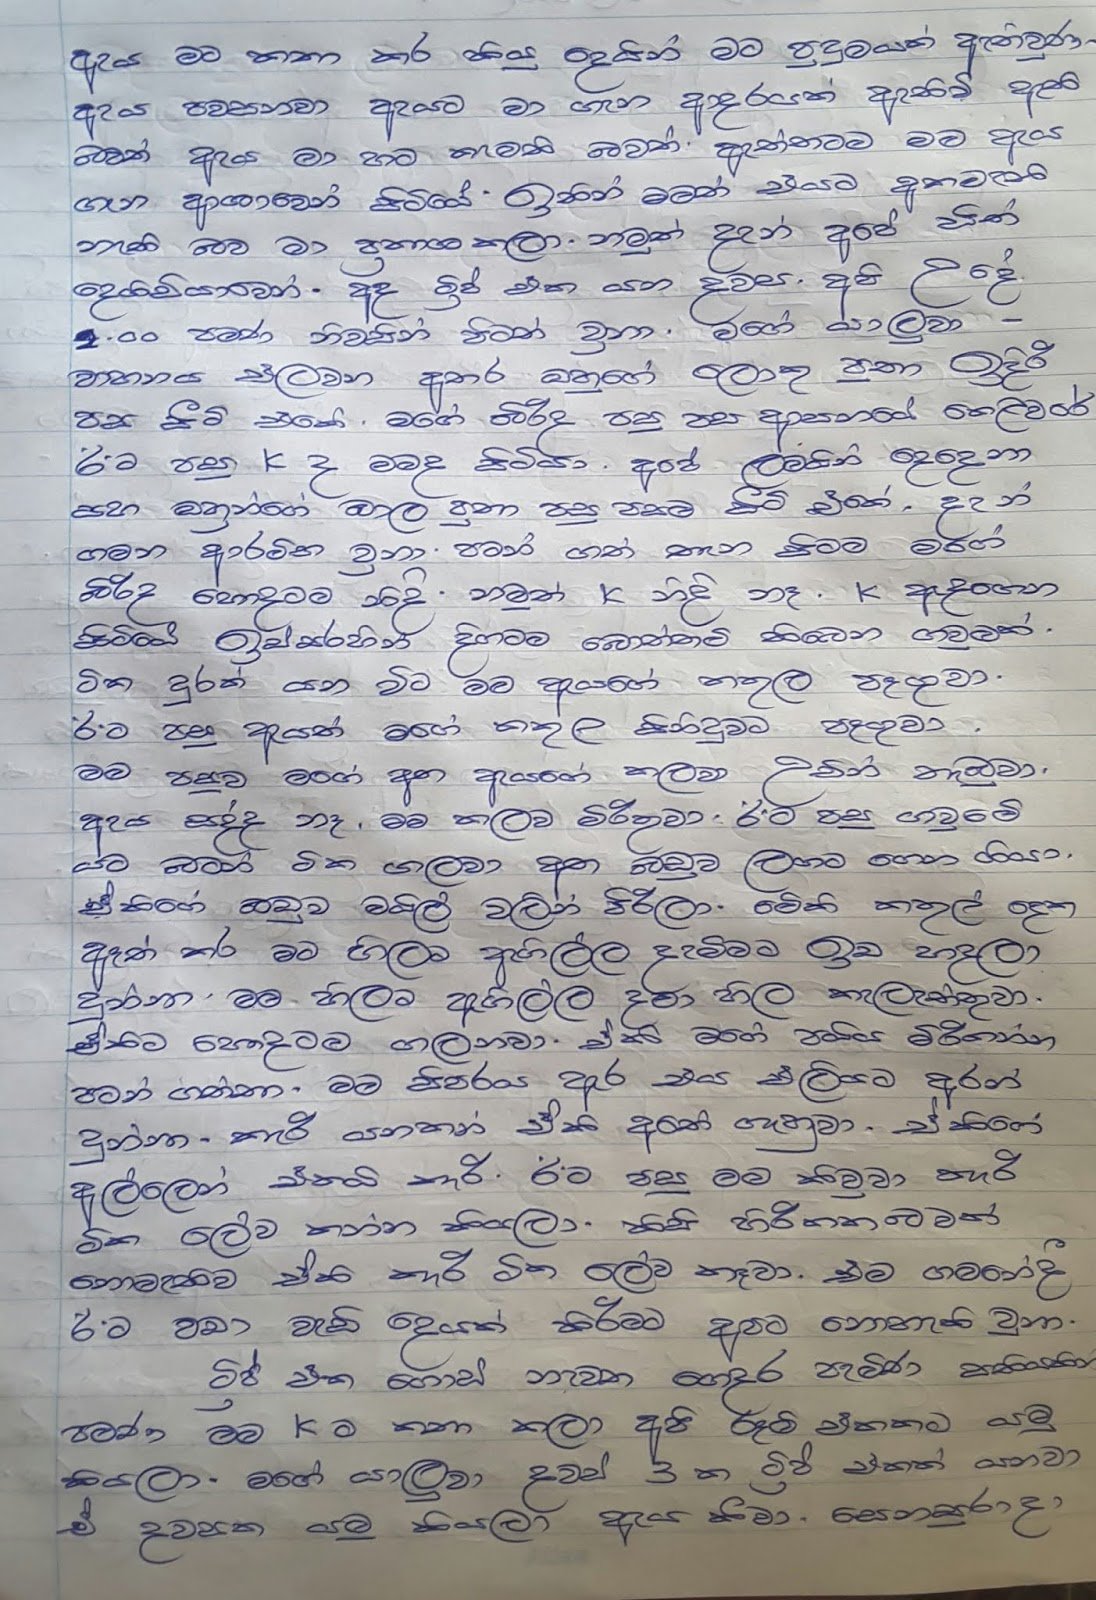 ඇය මට කතා කර කියු දෙයින් මට පුදුමයක් ඇතිවුණා.
ඇය පවසනවා ඇයට මා ගැන ආදරයක් ඇතිවී ඇති
බවත් ඇය මා හට කැමති බවත්. ඇත්තටම මම ඇය
ගැන ආශාවෙන් සිටියේ. ඉතින් මමත් එයට අකමැත්
නැති බව මා ප්‍රකාශ කලා. නමුත් දැන් අපේ සිත්
අද ට්‍රිප් එක යන දවස. අපි උදේ
.00 පමණ නිවසින් පිටත් වුනා. මගේ යාලුවා –
වාහනය එලවන අතර ඔහුගේ ලොකු පුතා ඉදිරි
පස සීට් එකේ. මගේ බිරිද පසු පස ආසනයේ කෙලවරේ
ඊ.ට පසු K ද මමද සිටියා. අපේ ලමයින් දෙදෙනා
සහ ඔහුන්ගේ බාල පුතා පසු පසම සීට් එකේ. දැන්
ගමන ආරම්භ වුනා. පටන් ගත් තැන සිටම මගේ
බිරිද හොදටම නිදි. නමුත් K නිදි නෑ. K ඇදගෙන
සිටියේ ඉස්සරහින් දිගටම බොත්තම් තිබෙන ගවුමක්.
ටික දුරක් යන විට මම ඇයගේ කකුල පෑගුවා.
ඊ.ට පසු ඇයත් මගේ කකුල සිහිදුවට පෑගුවා.
මම පසුව මගේ අත ඇයගේ කලවා උඩින් තැබුවා.
ඇය සද්ද නෑ. මම කලව මිරිකුවා. ඊ.ට පසු ගවුමේ
යට බටන් ටික ගලවා අත බඩුව ලගට ගෙන ගියා.
ඒකිගේ බඩුව මයිල් වලින් පිරිලා. මේකි කකුල් දෙක
ඈත් කර මට හිලට ඇගිල්ල දැම්මට ඉඩ හදලා
දුන්නා. මම හිලට ඇගිල්ල දමා හිල කැලැත්තුවා.
ඒකිට හොදටම ගලනවා. ඒකි මගේ පයිය මිරිගන්න
පටන් ගත්තා. මම සිපරය ඇර එය එලියට අරන්
දුන්නා. කැරි යනකන් ඒකි අතේ ගැහුවා. ඒකිගේ
අල්ලෙන් එකයි කැරි. ඊ.ට පසු මම කිවුවා කැරි
ටික ලේව කන්න කියලා. කිසි හිරිගතබවක්
නොමැතිව ඒකි කැරි ටික ලේව කෑවා. එම ගමනේදී
ඊ.ට වඩා වැඩි දෙයක් කිරීමට අපට නොහැකි වුනා.
ට්‍රිප් එක ගොස් නැවත ගෙදර පැමිණ
පමණ මම K ට කතා කලා අපි රූම් එකකට යමු
කියලා. මගේ යාලුවා දවස් 3 ක ට්‍රිප් එකක් යනවා
ඒ දවසක යමු කියලා ඇය කීවා. සෙනසුරාදා